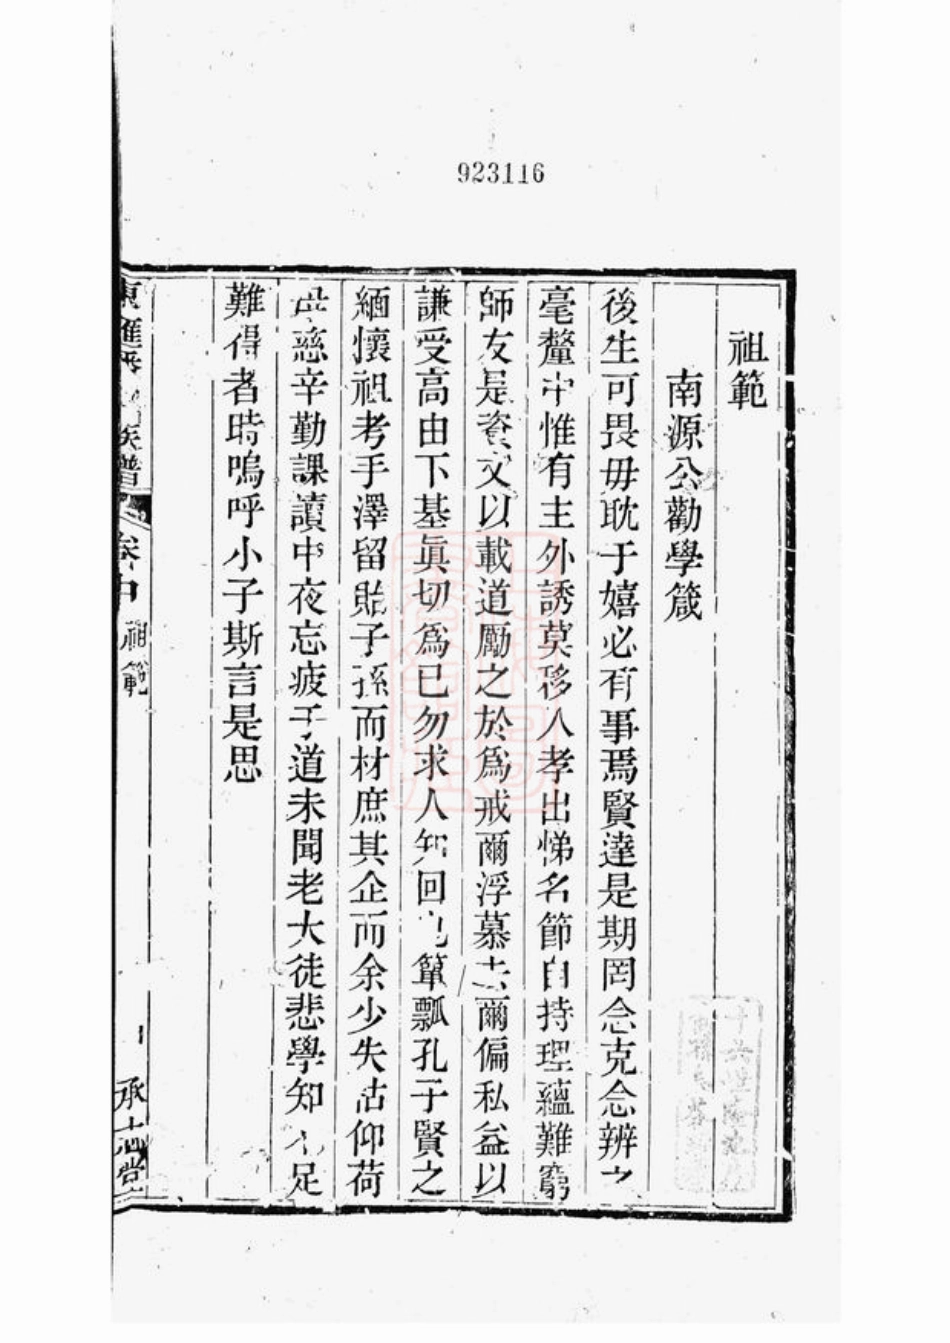 923116
祖範
南源公勸學箴
後生可畏毋耽于嬉必有事焉賢達是期罔念克念辨之
毫釐中惟有主外誘莫移入孝出悌名節自持理蘊難窮
師友是資文以載道勵之於爲戒爾浮慕去爾偏私益以
謙受高由下基眞切爲已勿求人知回也簞瓢孔子賢之
緬懷祖考手澤留貽子孫而材庶其企而余少失怙仰荷
母慈辛勤課讀中夜忘疲于道未聞老大徒悲學知不足
難得者時嗚呼小子斯言是思
東匯 族譜 卷中 祖範 承志堂